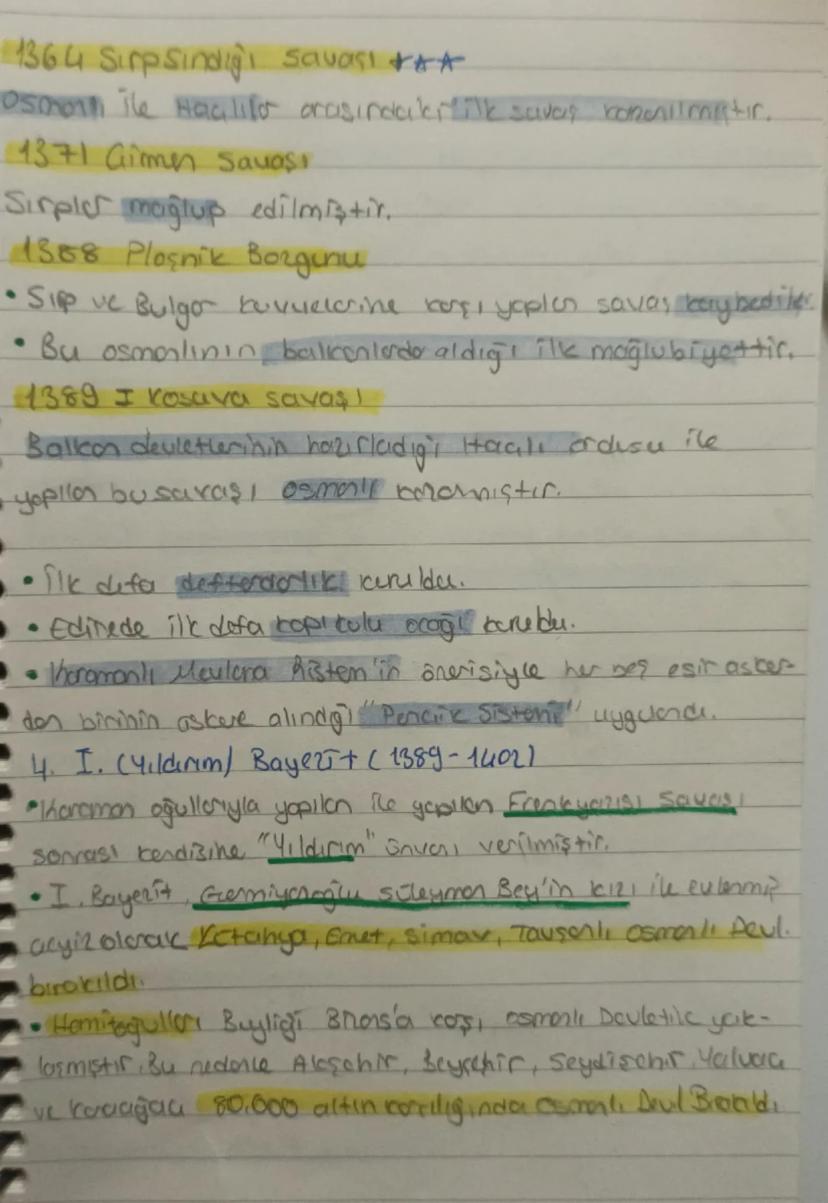 1364 Sırpsındığı Savaşı ★★★
Osmanlı ile Haçlılar arasındaki ilk savaş kazanılmıştır.
1371 Çirmen Savaşı
Sırplar mağlup edilmiştir.
1388 Ploşnik Bozgunu
• Sırp ve Bulgar kuvvetlerine karşı yapılan savaş kaybedildi.
• Bu osmanlının balkanlarda aldığı ilk mağlubiyettir.
1389 I Kosova savaşı
Balkan devletlerinin hazırladığı Haçlı ordusu ile
yapılan bu savaşı osmanlı kazanmıştır.
• İlk defa defterdarlık kuruldu.
• Edirnede ilk defa kapıkulu ocağı kuruldu.
• Karamanlı Mevlana Rüstem'in önerisiyle her beş esir asker-
den birinin askere alındığı "Pencik Sistemi" uygulandı.
4. I. (Yıldırım) Bayezit (1389-1402)
• Karaman oğullarıyla yapılan ile yapılan Frenkyazısı Savaşı
sonrası kendisine "Yıldırım" ünvanı verilmiştir.
• I. Bayezit, Germiyanoğlu süleyman Bey'in kızı ile evlenmiş
çeyiz olarak Kütahya, Emet, Simav, Tavşanlı osmanlı Devl.
bırakıldı.
• Hamitoğulları Beyliği karşı osmanlı Devletile yak-
laşmıştır. Bu nedenle Akşehir, Beyşehir, Seydişehir, Yalvaç
ve Karaağaç 80.000 altın karşılığında osmanlı Devl Bırakıldı